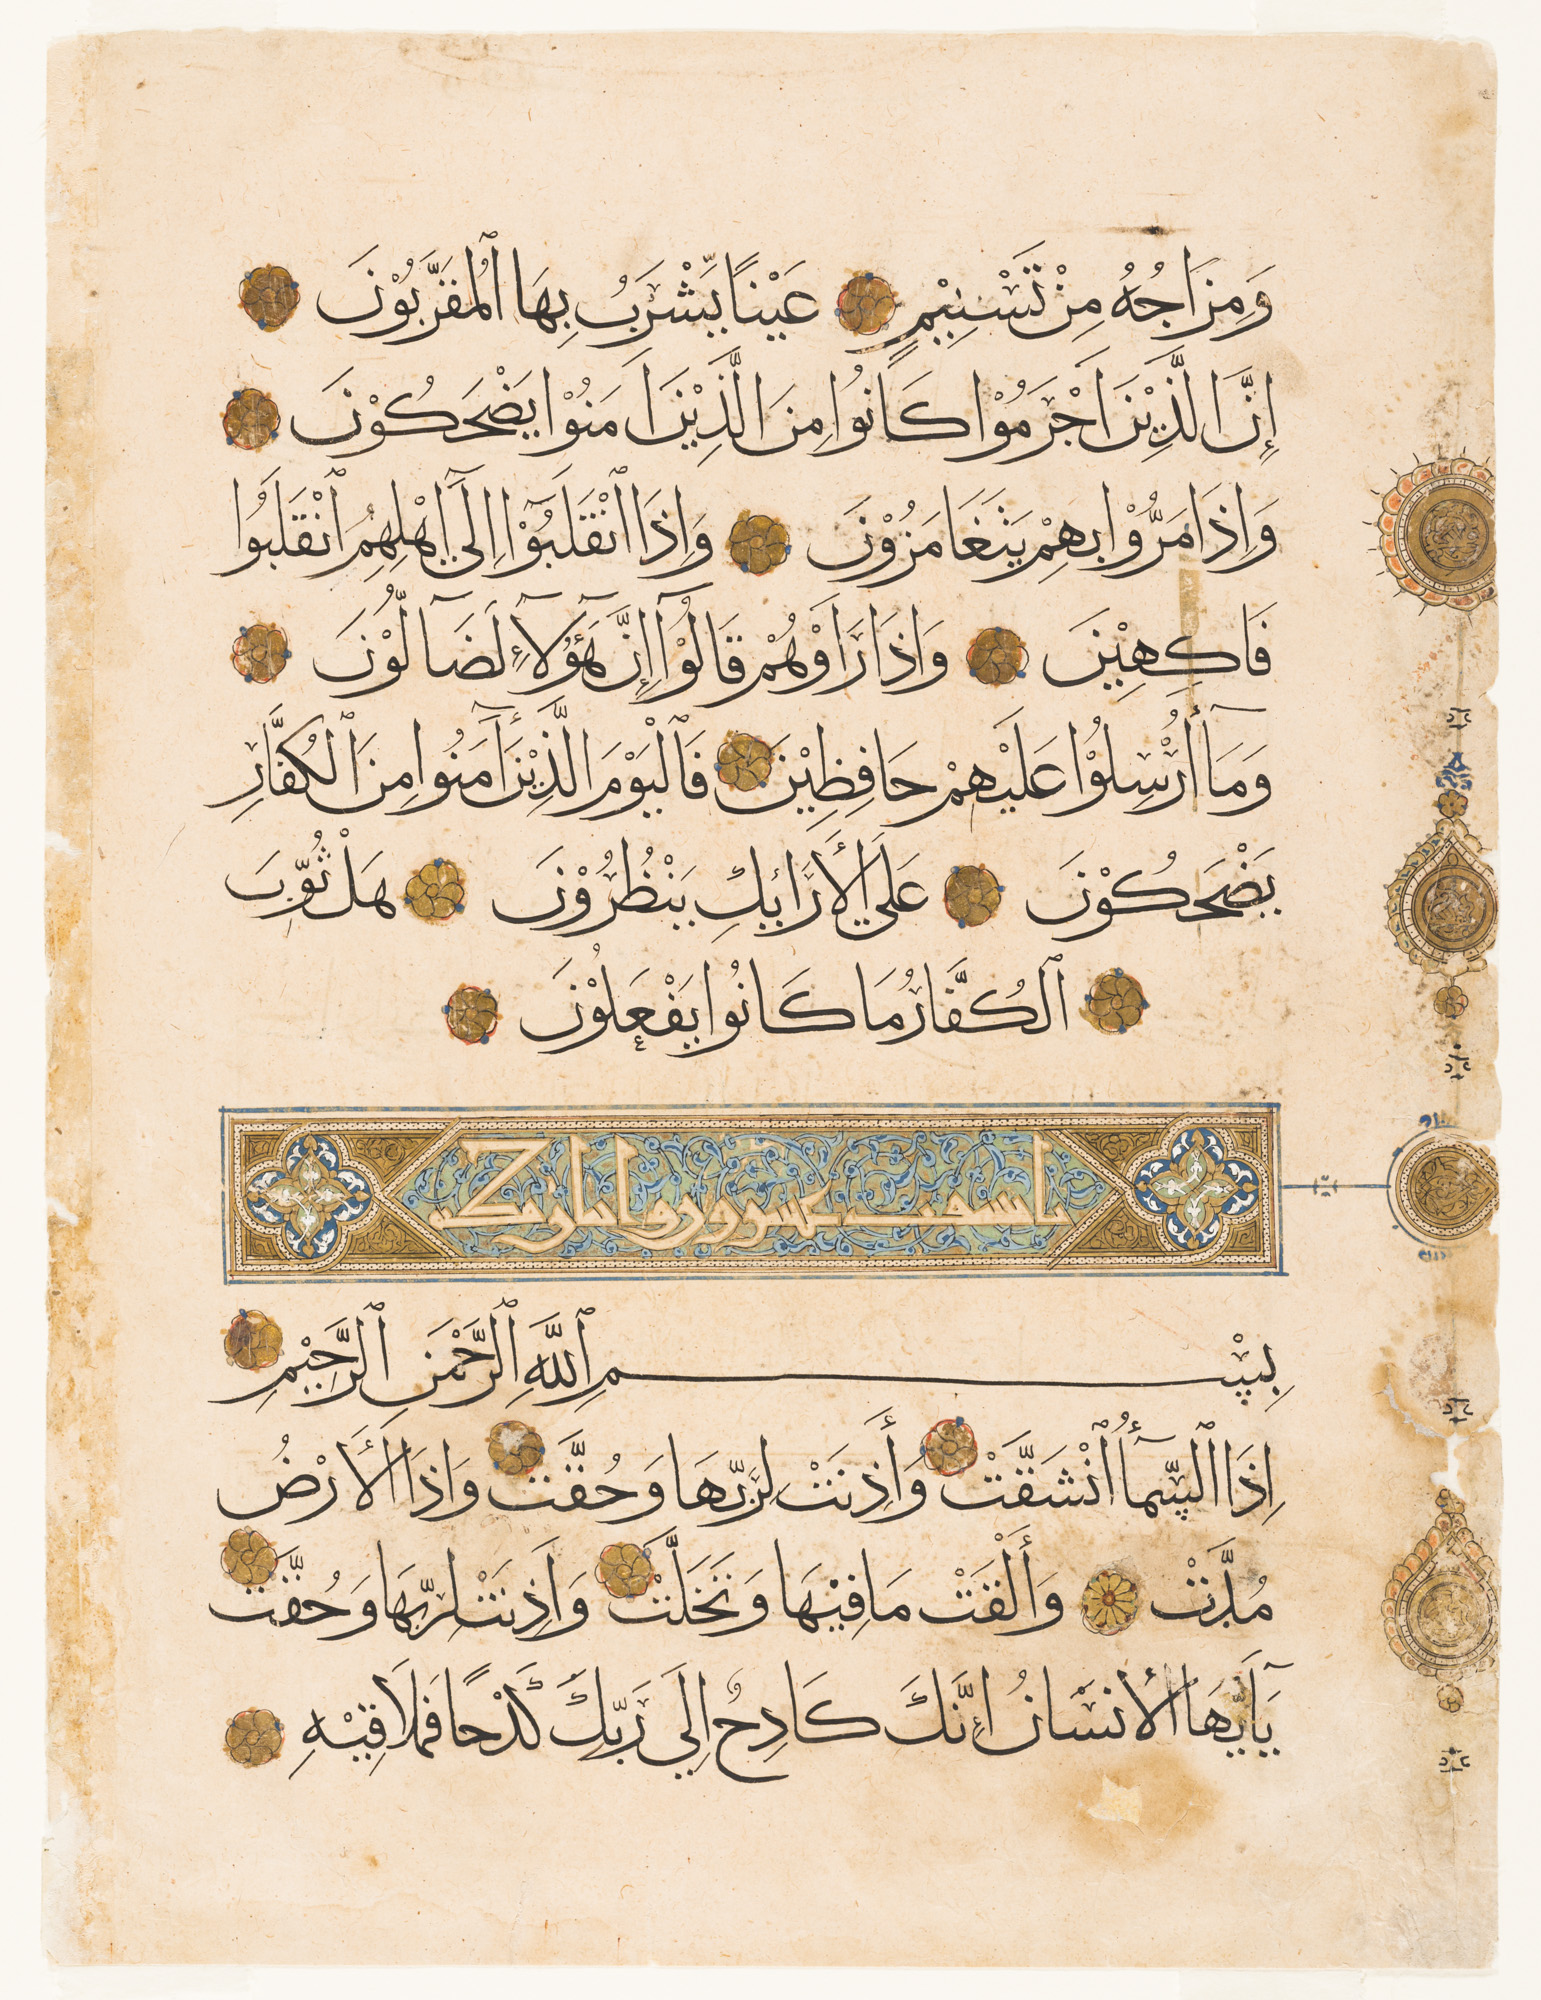 وَمِزَاجُهُ مِنْ تَسْنِيْمٍ عَيْنًا يَّشْرَبُ بِهَا الْمُقَرَّبُوْنَ
إِنَّ الَّذِيْنَ اَجْرَمُوْا كَانُوا مِنَ الَّذِيْنَ اٰمَنُوْا يَضْحَكُوْنَ
وَاِذَا مَرُّوْا بِهِمْ يَتَغَامَزُوْنَ وَاِذَا انْقَلَبُوْٓا اِلٰٓى اَهْلِهِمُ انْقَلَبُوْا
فَاكِهِيْنَ وَاِذَا رَاَوْهُمْ قَالُوْٓا اِنَّ هٰٓؤُلَآءِ لَضَآلُّوْنَ
وَمَآ أُرْسِلُوْا عَلَيْهِمْ حَافِظِيْنَ فَالْيَوْمَ الَّذِيْنَ آمَنُوا مِنَ الْكُفَّارِ
يَضْحَكُوْنَ عَلَى الْأَرَائِكِ يَنْظُرُوْنَ هَلْ ثُوِّبَ
الْكُفَّارُ مَا كَانُوا يَفْعَلُوْنَ
بِسْمِ اللَّهِ الرَّحْمٰنِ الرَّحِيْمِ
اِذَا السَّمَآءُ انْشَقَّتْ وَأَذِنَتْ لِرَبِّهَا وَحُقَّتْ وَاِذَا الْأَرْضُ
مُدَّتْ وَأَلْقَتْ مَا فِيْهَا وَتَخَلَّتْ وَاَذِنَتْ لِرَبِّهَا وَحُقَّتْ
يَآاَيُّهَا الْاِنْسَانُ اِنَّكَ كَادِحٌ اِلَى رَبِّكَ كَدْحًا فَمُلَاقِيْهِ